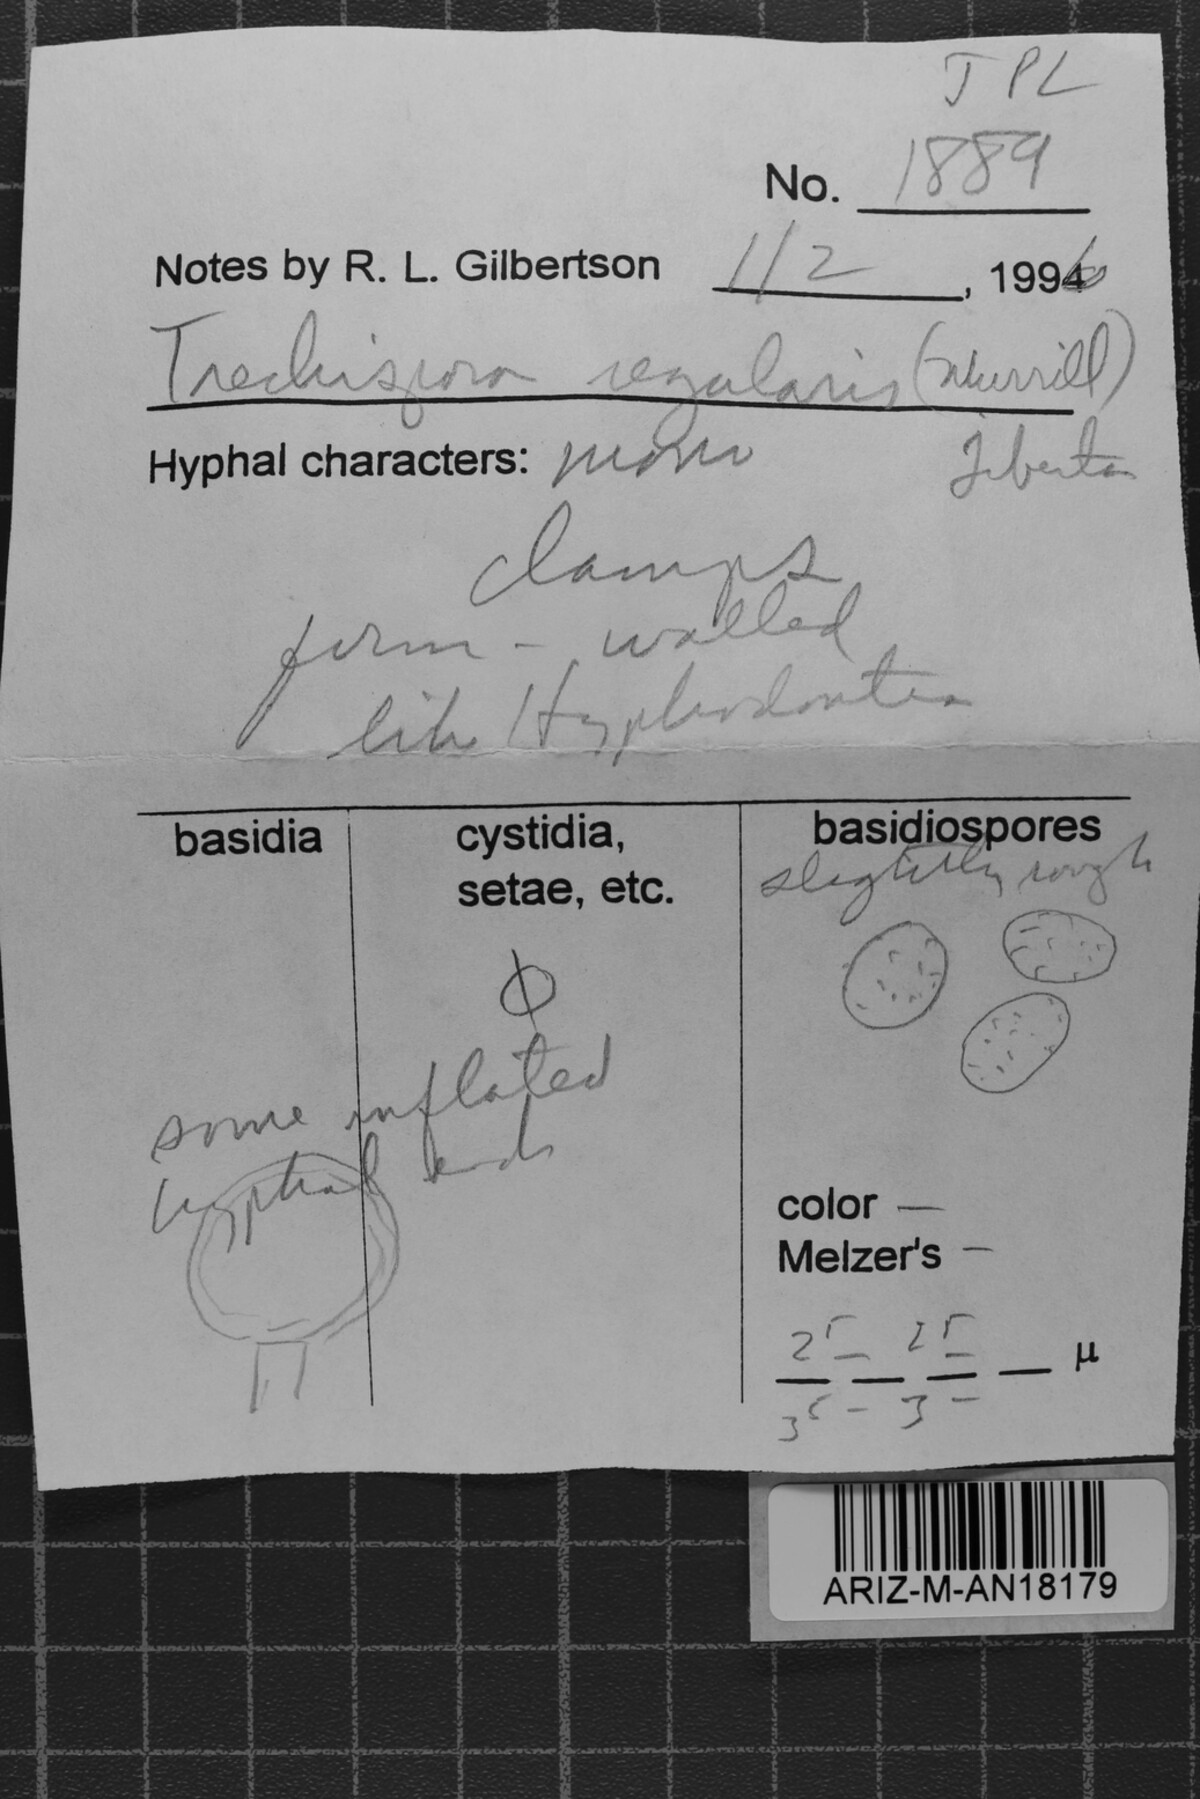 JPL
No. 1889
Notes by R. L. Gilbertson 1/2, 1996
Trechispora regularis (Murrill)
Liberta
Hyphal characters: mono
clamps
firm - walled
like Hyphodontia
basidia
cystidia,
setae, etc.
basidiospores
slightly rough
Φ
some inflated
hyphal ends
color —
Melzer's —
2 5 — 2 5 — µ
3 5 — 3 —
ARIZ-M-AN18179